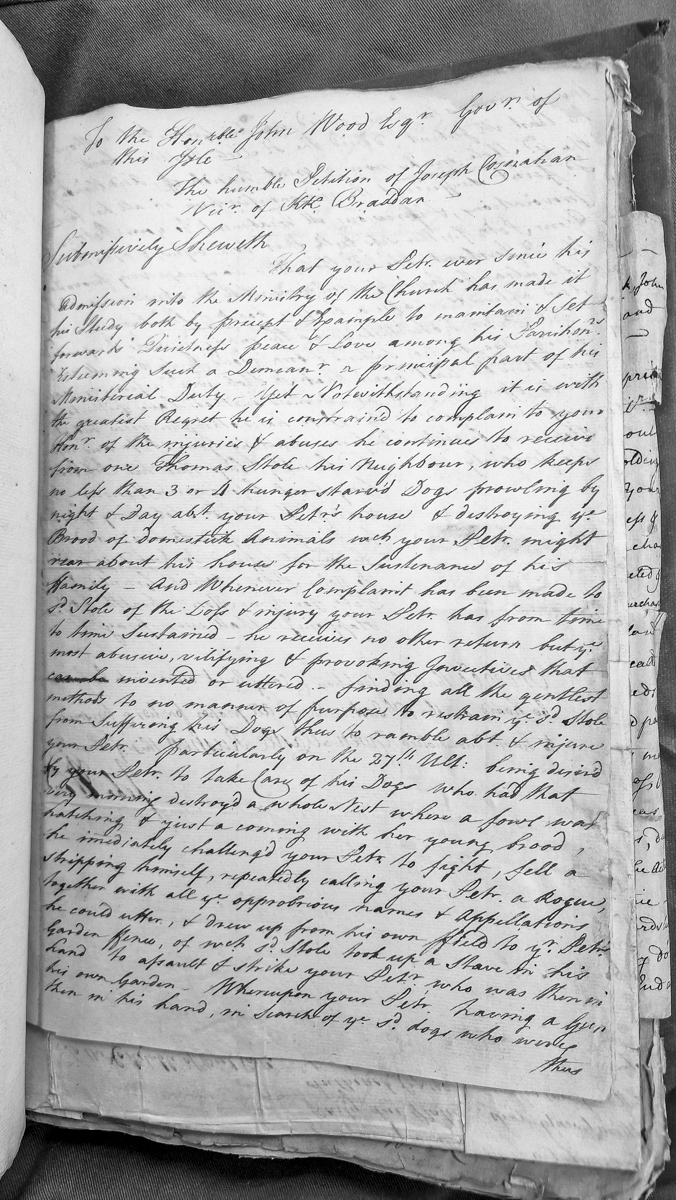 To the Honrble John Wood Esqr Govrr of
this Isle —
The humble Petition of Joseph Cosnahan
Vicr. of Kk Braddan —
Submissively Sheweth
That your Petr. ever since his
admission into the Ministry of the Church has made it
his Study both by precept & Example to maintain & Set
forwards Quietness peace & Love among his Parishonrs.
Esteeming Such a Demeanr a principal part of his
Ministerial Duty — Yet Notwithstanding it is with
the greatest Regret he is constrain'd to complain to your
Honr. of the injuries & abuses he continues to receive
from one Thomas Stole his Neighbour, who keeps
no less than 3 or 4 hunger starv'd Dogs prowling by
night & Day abt. your Petr's house & destroying ye.
Brood of domestick Animals wch your Petr. might
rear about his house for the Sustenance of his
Family — And Whenever Complaint has been made to
sd. Stole of the Loss & injury your Petr. has from time
to time Sustained — he receives no other return but ye.
most abusive, vilifying & provoking Invectives that
can be invented or uttered — finding all the gentlest
methods to no manner of purpose to restrain ye. sd. Stole
from Suffering his Dogs thus to ramble abt. & injure
your Petr. particularly on the 27th Ult: being desird
by your Petr. to take Care of his Dogs who had that
very morning destroyd a whole Nest where a fowl was
hatching & just a coming with her young brood,
he imediately challeng'd your Petr. to fight, fell a
stripping himself, repeatedly calling your Petr. a Rogue,
together with all ye. opprobrious names & Appellations
he could utter, & drew up from his own ffield to yr. Petrs.
Garden ffence, of wch sd. Stole took up a Stave in his
hand to assault & strike your Petr who was then in
his own Garden — Whereupon your Petr. having a Gun
then in his hand, in Search of ye sd. dogs who were
thus
John
and